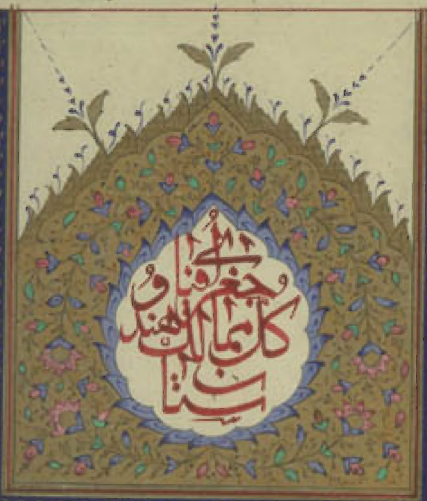 جغرافیای
كل ممالك هندو
ستان